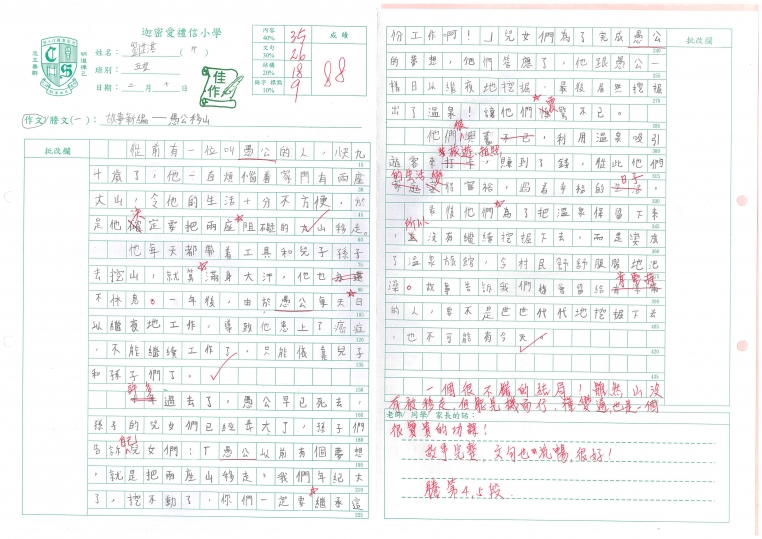 迦密愛禮信小學
明道律己
忠主善群
姓名:
班別: 五愛
日期: 二月十日
佳作
內容 40% 35
文句 30% 26
結構 20% 18
錯字 標點 10% 9
成績
88
作文/謄文(一): 故事新編——愚公移山
批改欄
從前有一位叫愚公的人,快九
十歲了,他一直煩惱着家門有兩座
大山,令他的生活十分不方便,於
是他決定要把兩座阻礙的大山移走。
他每天都帶着工具和兒子孫子
去挖山,就算滿身大汗,他也
不休息。一年後,由於愚公每天日
以繼夜地工作,導致他患上了癌症
,不能繼續工作了,只能依靠兒子
和孫子們了。
許多年過去了,愚公早已死去,
孫子的兒女們已經長大了,孫子們
告訴自己兒女們:「愚公以前有個夢想
,就是把兩座山移走,我們年紀大
了,挖不動了,你們一定要繼承這
份工作啊!」兒女們為了完成愚公
的夢想,他們答應了,他跟愚公一
樣日以繼夜地挖掘,最後居然挖掘
出了溫泉!讓他們震驚不已。
他們很興奮,利用溫泉吸引
遊客來旅遊、拍照,賺到了錢,從此他們
的生活變得富裕,過着幸福的日子。
最後他們為了把溫泉保留下來
,所以沒有繼續挖掘下去,而是變成
了溫泉旅館,令村民舒舒服服地泡
澡。故事告訴我們機會留給有堅持
的人,要不是世世代代地挖掘下去
,也不可能有今天。
批改欄
一個很不錯的結局!雖然山沒
有被移走,但能見機而行,擇變通也是一個
老師/同學/家長的話:
很寶貴的功課!
故事完整,文句也流暢,很好!
謄第4、5段